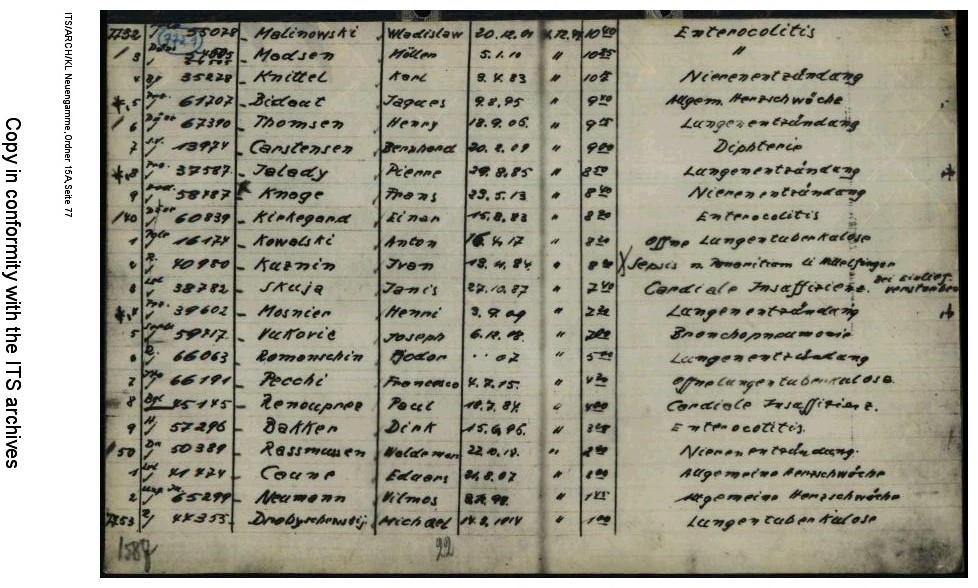 ITS/ARCH/KL Neuengamme, Ordner 15A, Seite 77
Copy in conformity with the ITS archives
7732 55078 Malinowski Wladislaw 20.12.01 10 40 Enterocolitis
3 Madsen 5.1.10 " 10 25 "
4 35278 Knittel Karl 9.4.83 " Nierenentzündung
* 5 61707 Bidaut Jaques 9.8.95 " Allgem. Herzschwäche
6 67390 Thomsen Henry 18.9.06. " Lungenentzündung
7 13974 Carstensen Bernhard 20.2.09 " Diphterie
* 37587 Jalady Pierre 29.8.85 " Lungenentzündung *
9 58787 Knoge Frans 23.5.13 " Nierenentzündung
60839 Kirkegard Einar 15.8.83 " Enterocolitis
1 16174 Kowalski Anton 16.4.17 " Offne Lungentuberkulose
40980 Kusnin Ivan 18.4.84 " Sepsis n. Panaritium
38782 Skuja Janis 27.10.87 " Cardiale Insuffizienz. verstorben
* 39602 Mosnier Henri 3.9.09 " Lungenentzündung
5 59717 Vukovic Joseph 6.12.08 " Bronchopneumonie
66063 Romonschin Fjodor 07 " Lungenentzündung
7 66191 Pecchi Francesco 4.7.15. " Offne Lungentuberkulose
8 45145 Renouprez Paul 18.7.84 " Cardiale Insuffizienz.
9 57296 Bakker Dirk 15.6.96. " Enterocolitis.
150 50389 Rassmussen Waldemar 22.10.18. " Nierenentzündung.
1 41474 Caune Eduars 21.8.07 " Allgemeine Herzschwäche
2 65299 Neumann Vilmos " Allgemeine Herzschwäche
7753 44355 Drobyschewskij Michael 14.8.1914 " Lungentuberkulose
158 22